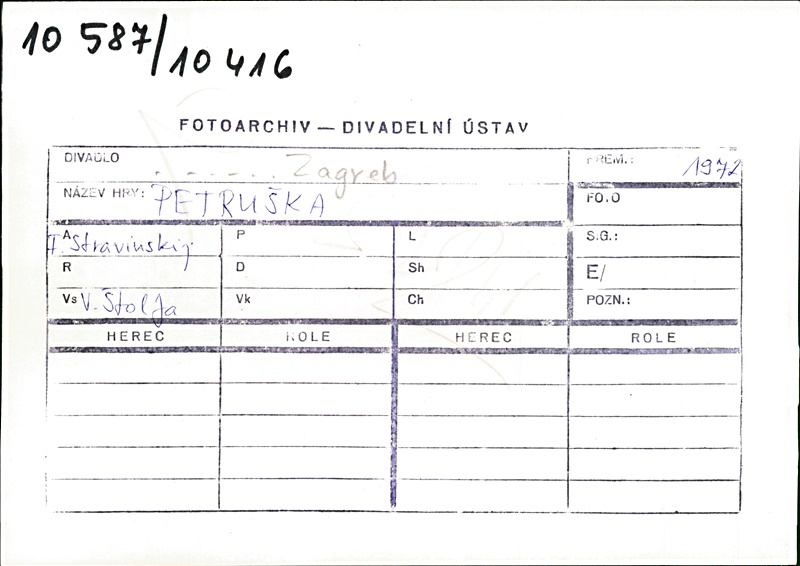 10 587/10 416
FOTOARCHIV — DIVADELNÍ ÚSTAV
DIVADLO . - - - - . . Zagreb
PREM.: 1972
NÁZEV HRY: PETRUŠKA
FOTO
A I. Stravinskij
P
L
S.G.:
R
D
Sh
E/
Vs V. Štolfa
Vk
Ch
POZN.:
HEREC ROLE HEREC ROLE